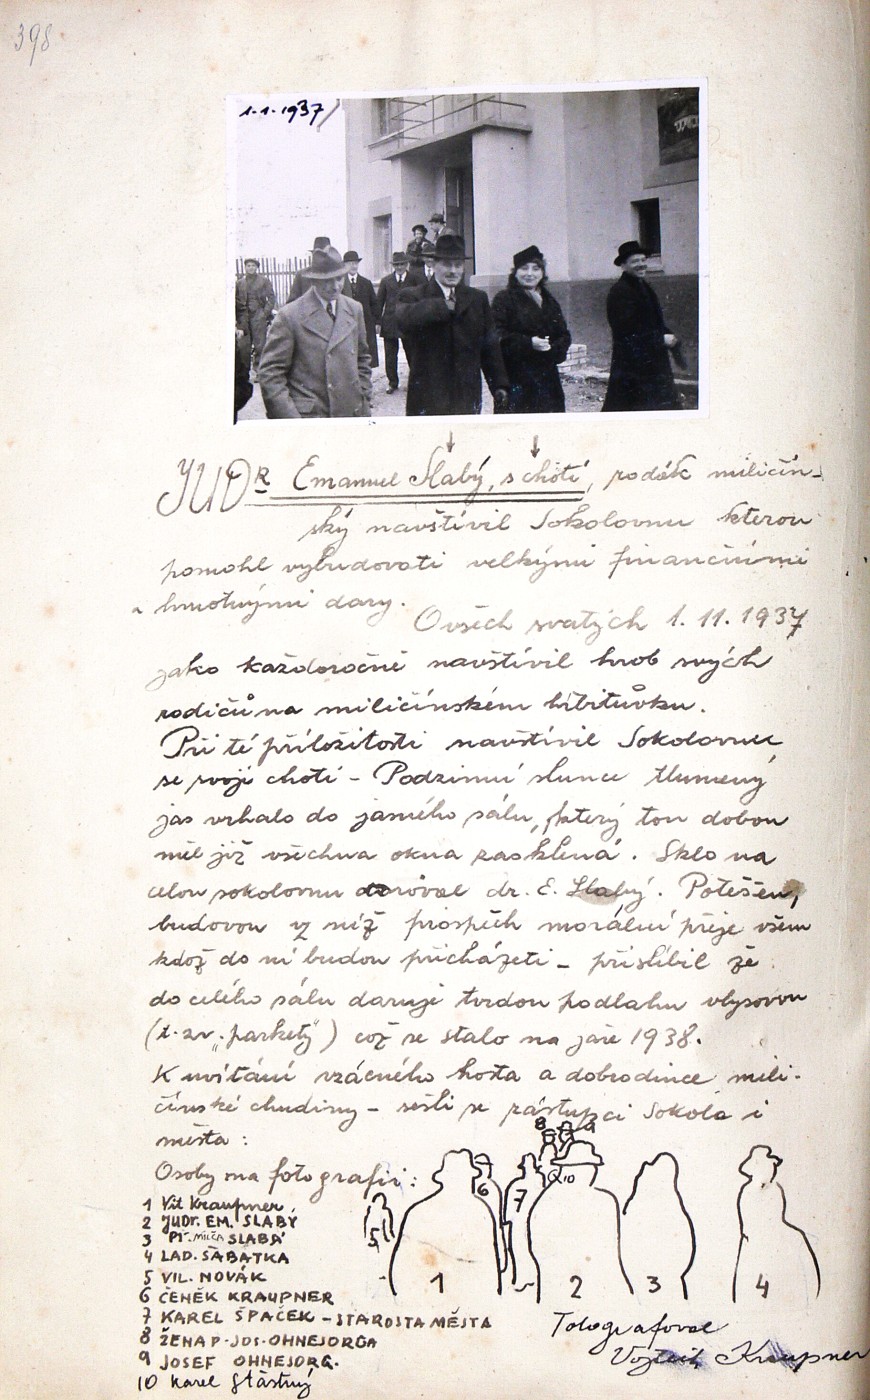 398
1.1.1937
JUDR Emanuel Slabý, s chotí, rodák miličín-
ský navštívil Sokolovnu kterou
pomohl vybudovati velkými finančními
a hmotnými dary.
O všech svatých 1. 11. 1937
jako každoročně navštívil hrob svých
rodičů na miličínském hřbitůvku.
Při té příložitosti navštívil Sokolovnu
se svojí chotí - Podzimní slunce tlumený
jas vrhalo do jasného sálu, který tou dobou
měl již všechna okna zasklená. Sklo na
celou sokolovnu daroval dr. E. Slabý. Potěšen,
budovou z níž prospěch morální přeje všem
kdož do ní budou přicházeti - přislíbil že
do celého sálu daruje tvrdou podlahu vlysovou
(t. zv. "parkety") což se stalo na jaře 1938.
K uvítání vzácného hosta a dobrodince mili-
čínské chudiny - sešli se zástupci Sokola i
města :
Osoby na fotografii :
1 Vít Kraupner
2 JUDr. EM. SLABÝ
3 PÍ. MÍLA SLABÁ
4 LAD. SABATKA
5 VIL. NOVÁK
6 ČENĚK KRAUPNER
7 KAREL ŠPAČEK - STAROSTA MĚSTA
8 ŽENA P. JOS. OHNESORGA
9 JOSEF OHNESORG.
10 Karel Šťastný
8 9
6 7 10
5 1 2 3 4
Fotografoval
Vojtěch Kraupner